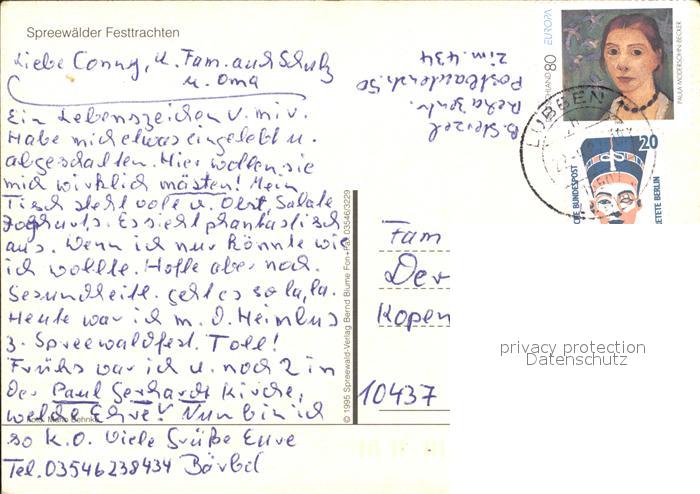 Spreewälder Festtrachten
Liebe Conny, u. Fam. auch Schulz
u. Oma
Ein Lebenszeichen v. mir.
Habe mich etwas eingelebt u.
abgeschalten. Hier wollen sie
mich wirklich mästen! Mein
Tisch steht voll v. Obst, Salate
Joghurts. Es sieht phantastisch
aus. Wenn ich nur könnte wie
ich wollte. Hoffe aber noch.
Gesundheitl. geht es so la, la.
Heute war ich m. d. Heimbus
z. Spreewaldfest. Toll!
Frühs war ich u. noch 2 in
der Paul Gerhardt Kirche,
welche Ehre! Nun bin ich
so K.O. Viele Grüße Eure
Tel. 03546238434 Bärbel
B. Sterzel
Reha
Postbautenstr. 50
Zi m. 434
© 1995 Spreewald-Verlag Bernd Blume Fon+Fax 03546/3229
EUROPA
80
PAULA MODERSOHN-BECKER
LÜBBEN
20
CHE BUNDESPOST
BERLIN
Fam
Der
Kopen
10437
privacy protection
Datenschutz